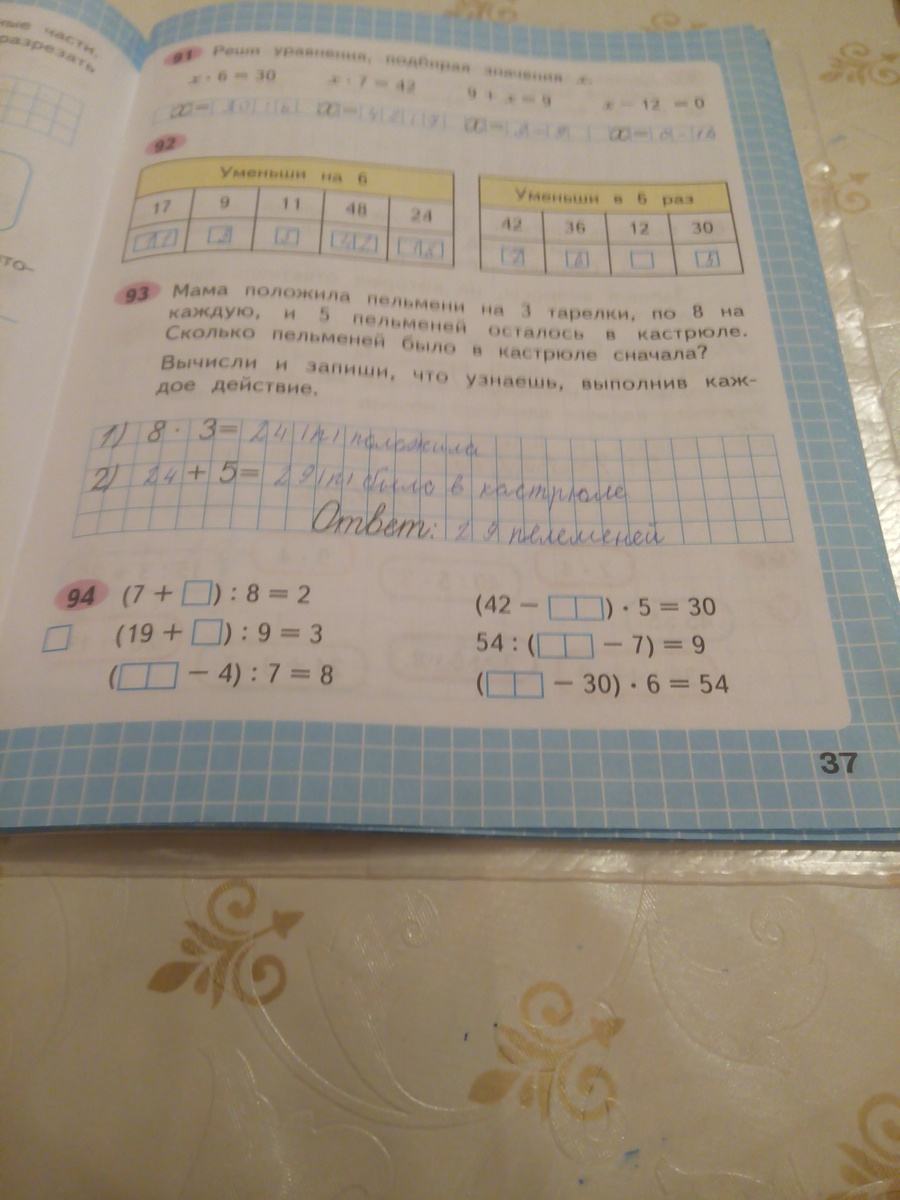 ные части.
разрезать
91 Реши уравнения, подбирая значения x.
x · 6 = 30 x · 7 = 42 9 + x = 9 x − 12 = 0
92
Уменьши на 6
17 9 11 48 24
Уменьши в 6 раз
42 36 12 30
93 Мама положила пельмени на 3 тарелки, по 8 на
каждую, и 5 пельменей осталось в кастрюле.
Сколько пельменей было в кастрюле сначала?
Вычисли и запиши, что узнаешь, выполнив каж-
дое действие.
1) 8 · 3 = 24 (п) положила
2) 24 + 5 = 29 (п) было в кастрюле
Ответ: 29 пелеменей
94 (7 + □) : 8 = 2 (42 − □□) · 5 = 30
(19 + □) : 9 = 3 54 : (□□ − 7) = 9
(□□ − 4) : 7 = 8 (□□ − 30) · 6 = 54
37